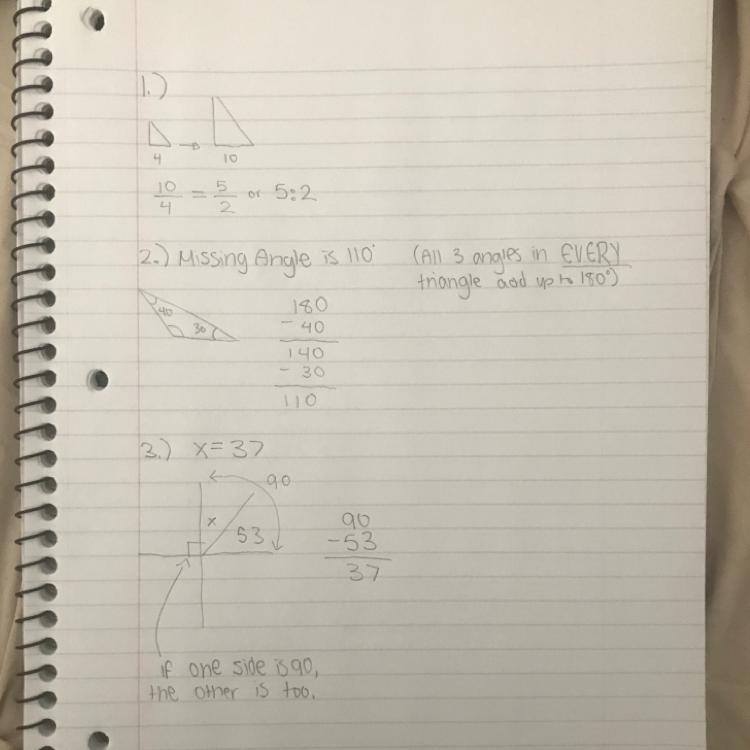 1.)
4 → 10
10/4 = 5/2 or 5:2
2.) Missing Angle is 110° (All 3 angles in EVERY
triangle add up to 180°)
40
30
180
- 40
140
- 30
110
3.) x=37
90
x
53
90
-53
37
if one side is 90,
the other is too.